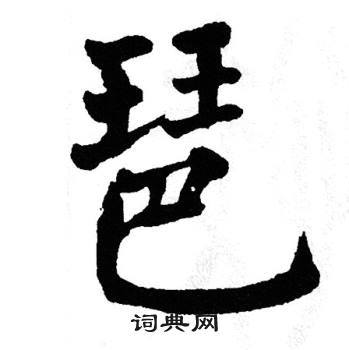 琶
词典网